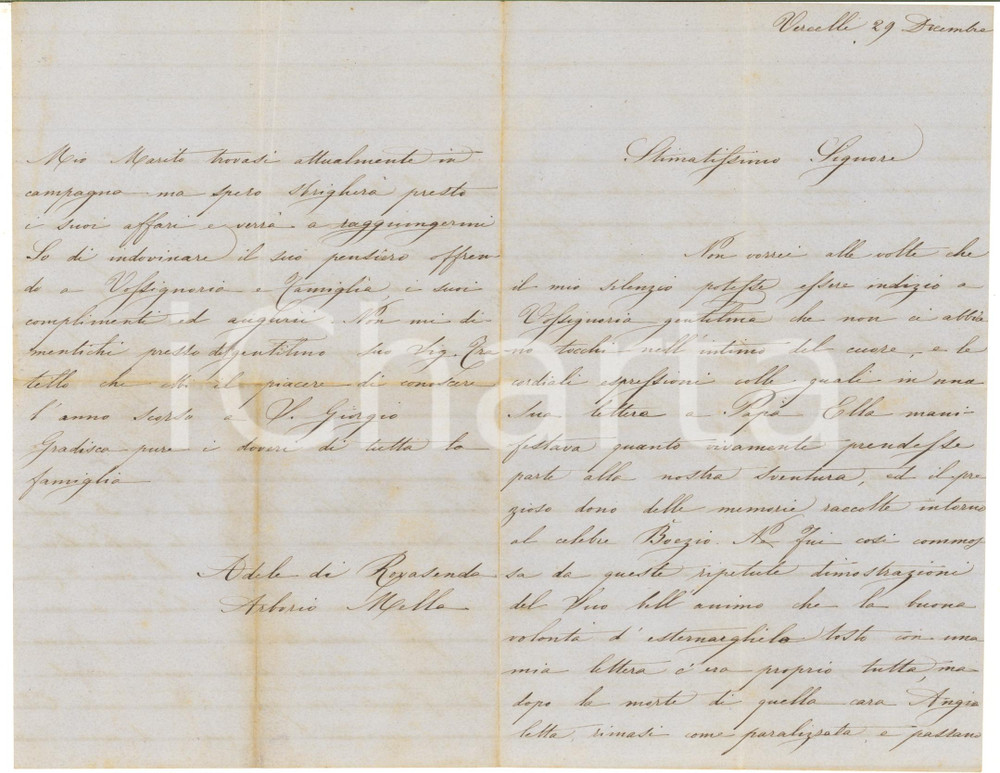 Vercelli 29 Dicembre
Stimatissimo Signore
Non vorrei alle volte che
il mio silenzio potesse essere indizio a
Vossignoria gentilma che non ci abbia
no tocchi nell'intimo del cuore, e le
cordiali espressioni colle quali in una
Sua lettera a Papà Ella mani
festava quanto vivamente prendesse
parte alla nostra sventura, ed il pre
zioso dono delle memorie raccolte intorno
al celebre Boezio. Ne fui così commos
sa da queste ripetute dimostrazioni
del Suo bell'animo che la buona
volontà d'esternarghiela tosto con una
mia lettera c'era proprio tutta, ma
dopo la morte di quella cara Angio
letta rimasi come paralizzata e passano
Mio Marito trovasi attualmente in
campagna ma spero strigherà presto
i suoi affari e verrà a raggiungermi
So di indovinare il suo pensiero offren
do a Vossignoria e Famiglia i suoi
complimenti ed augurii. Non mi di
mentichi presso gentilmo suo Sig. Fra
tello che ebbi al piacere di conoscere
l'anno scorso a S. Giorgio
Gradisca pure i doveri di tutta la
famiglia
Adele di Rovasenda
Arborio Mella
iCharta